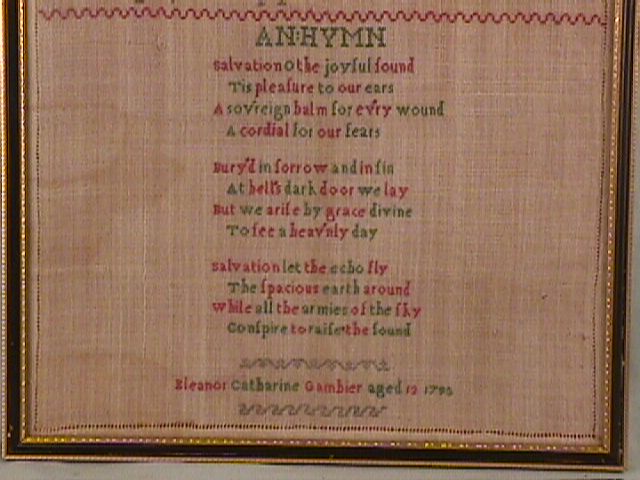 AN·HYMN
Salvation O the joyful sound
Tis pleaſure to our ears
A sov'reign balm for ev'ry wound
A cordial for our fears
Bury'd in ſorrow and in ſin
At hell's dark door we lay
But we ariſe by grace divine
To ſee a heav'nly day
Salvation let the echo fly
The ſpacious earth around
While all the armies of the ſky
Conſpire to raiſe the ſound
Eleanor Catharine Gambier aged 12